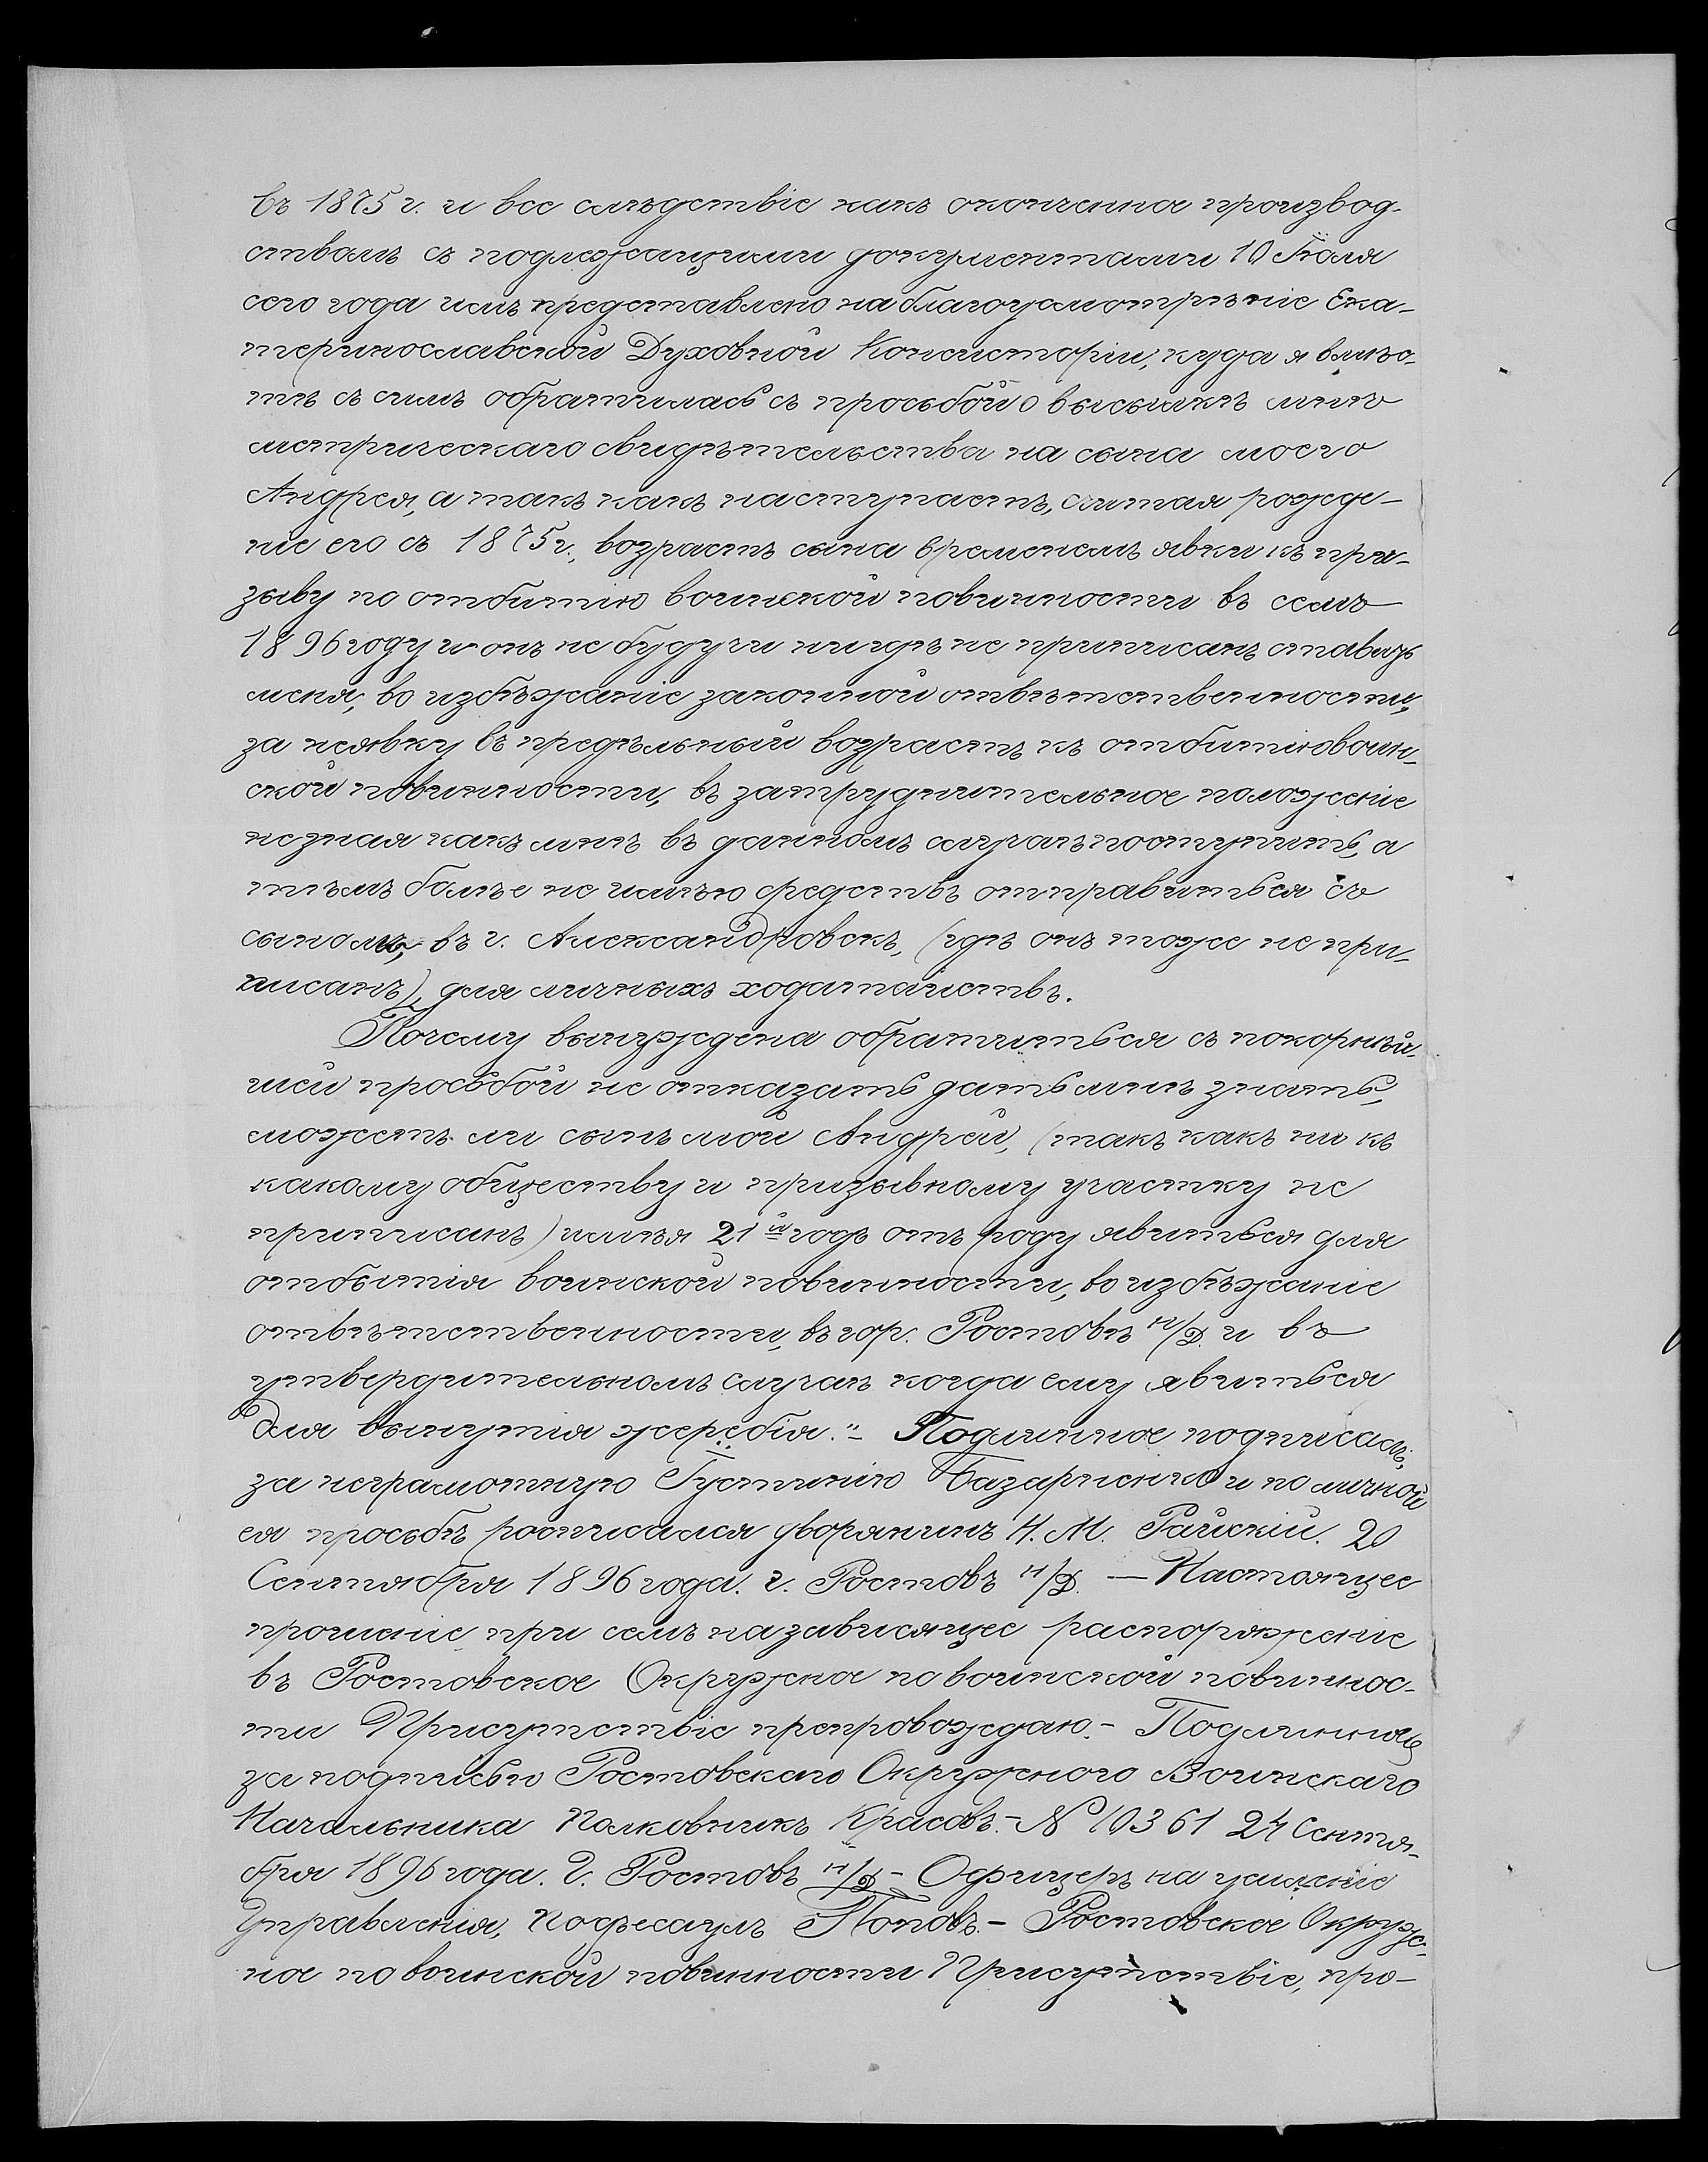 въ 1875 г. и все слѣдствіе какъ оконченное производ-
ствомъ съ подлежащими документами 10 Іюля
сего года имъ представлено на благоусмотрѣніе Ека-
теринославской Духовной Консисторіи, куда я вмѣс-
тѣ съ симъ обратилась съ просьбой о высылкѣ мнѣ
метрическаго свидѣтельства на сына моего
Андрея, а такъ какъ наступаетъ, считая рожде-
ніе его съ 1875 г., возрастъ сына временемъ явки къ при-
зыву по отбытію воинской повинности въ семъ
1896 году и онъ не будучи нигдѣ не приписанъ ставитъ
меня, во избѣжаніе законной отвѣтственности,
за неявку въ предѣльный возрастъ къ отбытію воин-
ской повинности, въ затруднительное положеніе
не зная какъ мнѣ въ данномъ случаѣ поступить, а
тѣмъ болѣе не имѣю средствъ отправиться съ
сыномъ, въ г. Александровскъ, (гдѣ онъ тоже не при-
писанъ), для личныхъ ходатайствъ.
Почему вынуждена обратиться съ покорнѣй-
шей просьбой не отказать дать мнѣ знать,
можетъ ли сынъ мой Андрей, (такъ какъ ни къ
какому обществу и призывному участку не
приписанъ) имѣя 21й годъ отъ роду явиться для
отбытія воинской повинности, во избѣжаніе
отвѣтственности, въ гор. Ростовѣ н/Д. и въ
утвердительномъ случаѣ когда ему явиться
для вынутія жеребія." - Подлинное подписалъ:
за неграмотную Густинію Базарную и по личной
ея просьбѣ росписался дворянинъ Н. М. Райскій. 20
Сентября 1896 года. г. Ростовъ н/Д. — Настоящее
прошеніе при семъ на зависящее распоряженіе
въ Ростовское Окружное по воинской повиннос-
ти Присутствіе препровождаю. - Подлинная
за подписью Ростовскаго Окружного Воинскаго
Начальника Полковникъ Красовъ. - № 10361 24 Сентя-
бря 1896 года. г. Ростовъ н/Д - Офицеръ на усиленіе
Управленія, Подъесаулъ Поповъ. - Ростовское Окруж-
ное по воинской повинности Присутствіе, про-